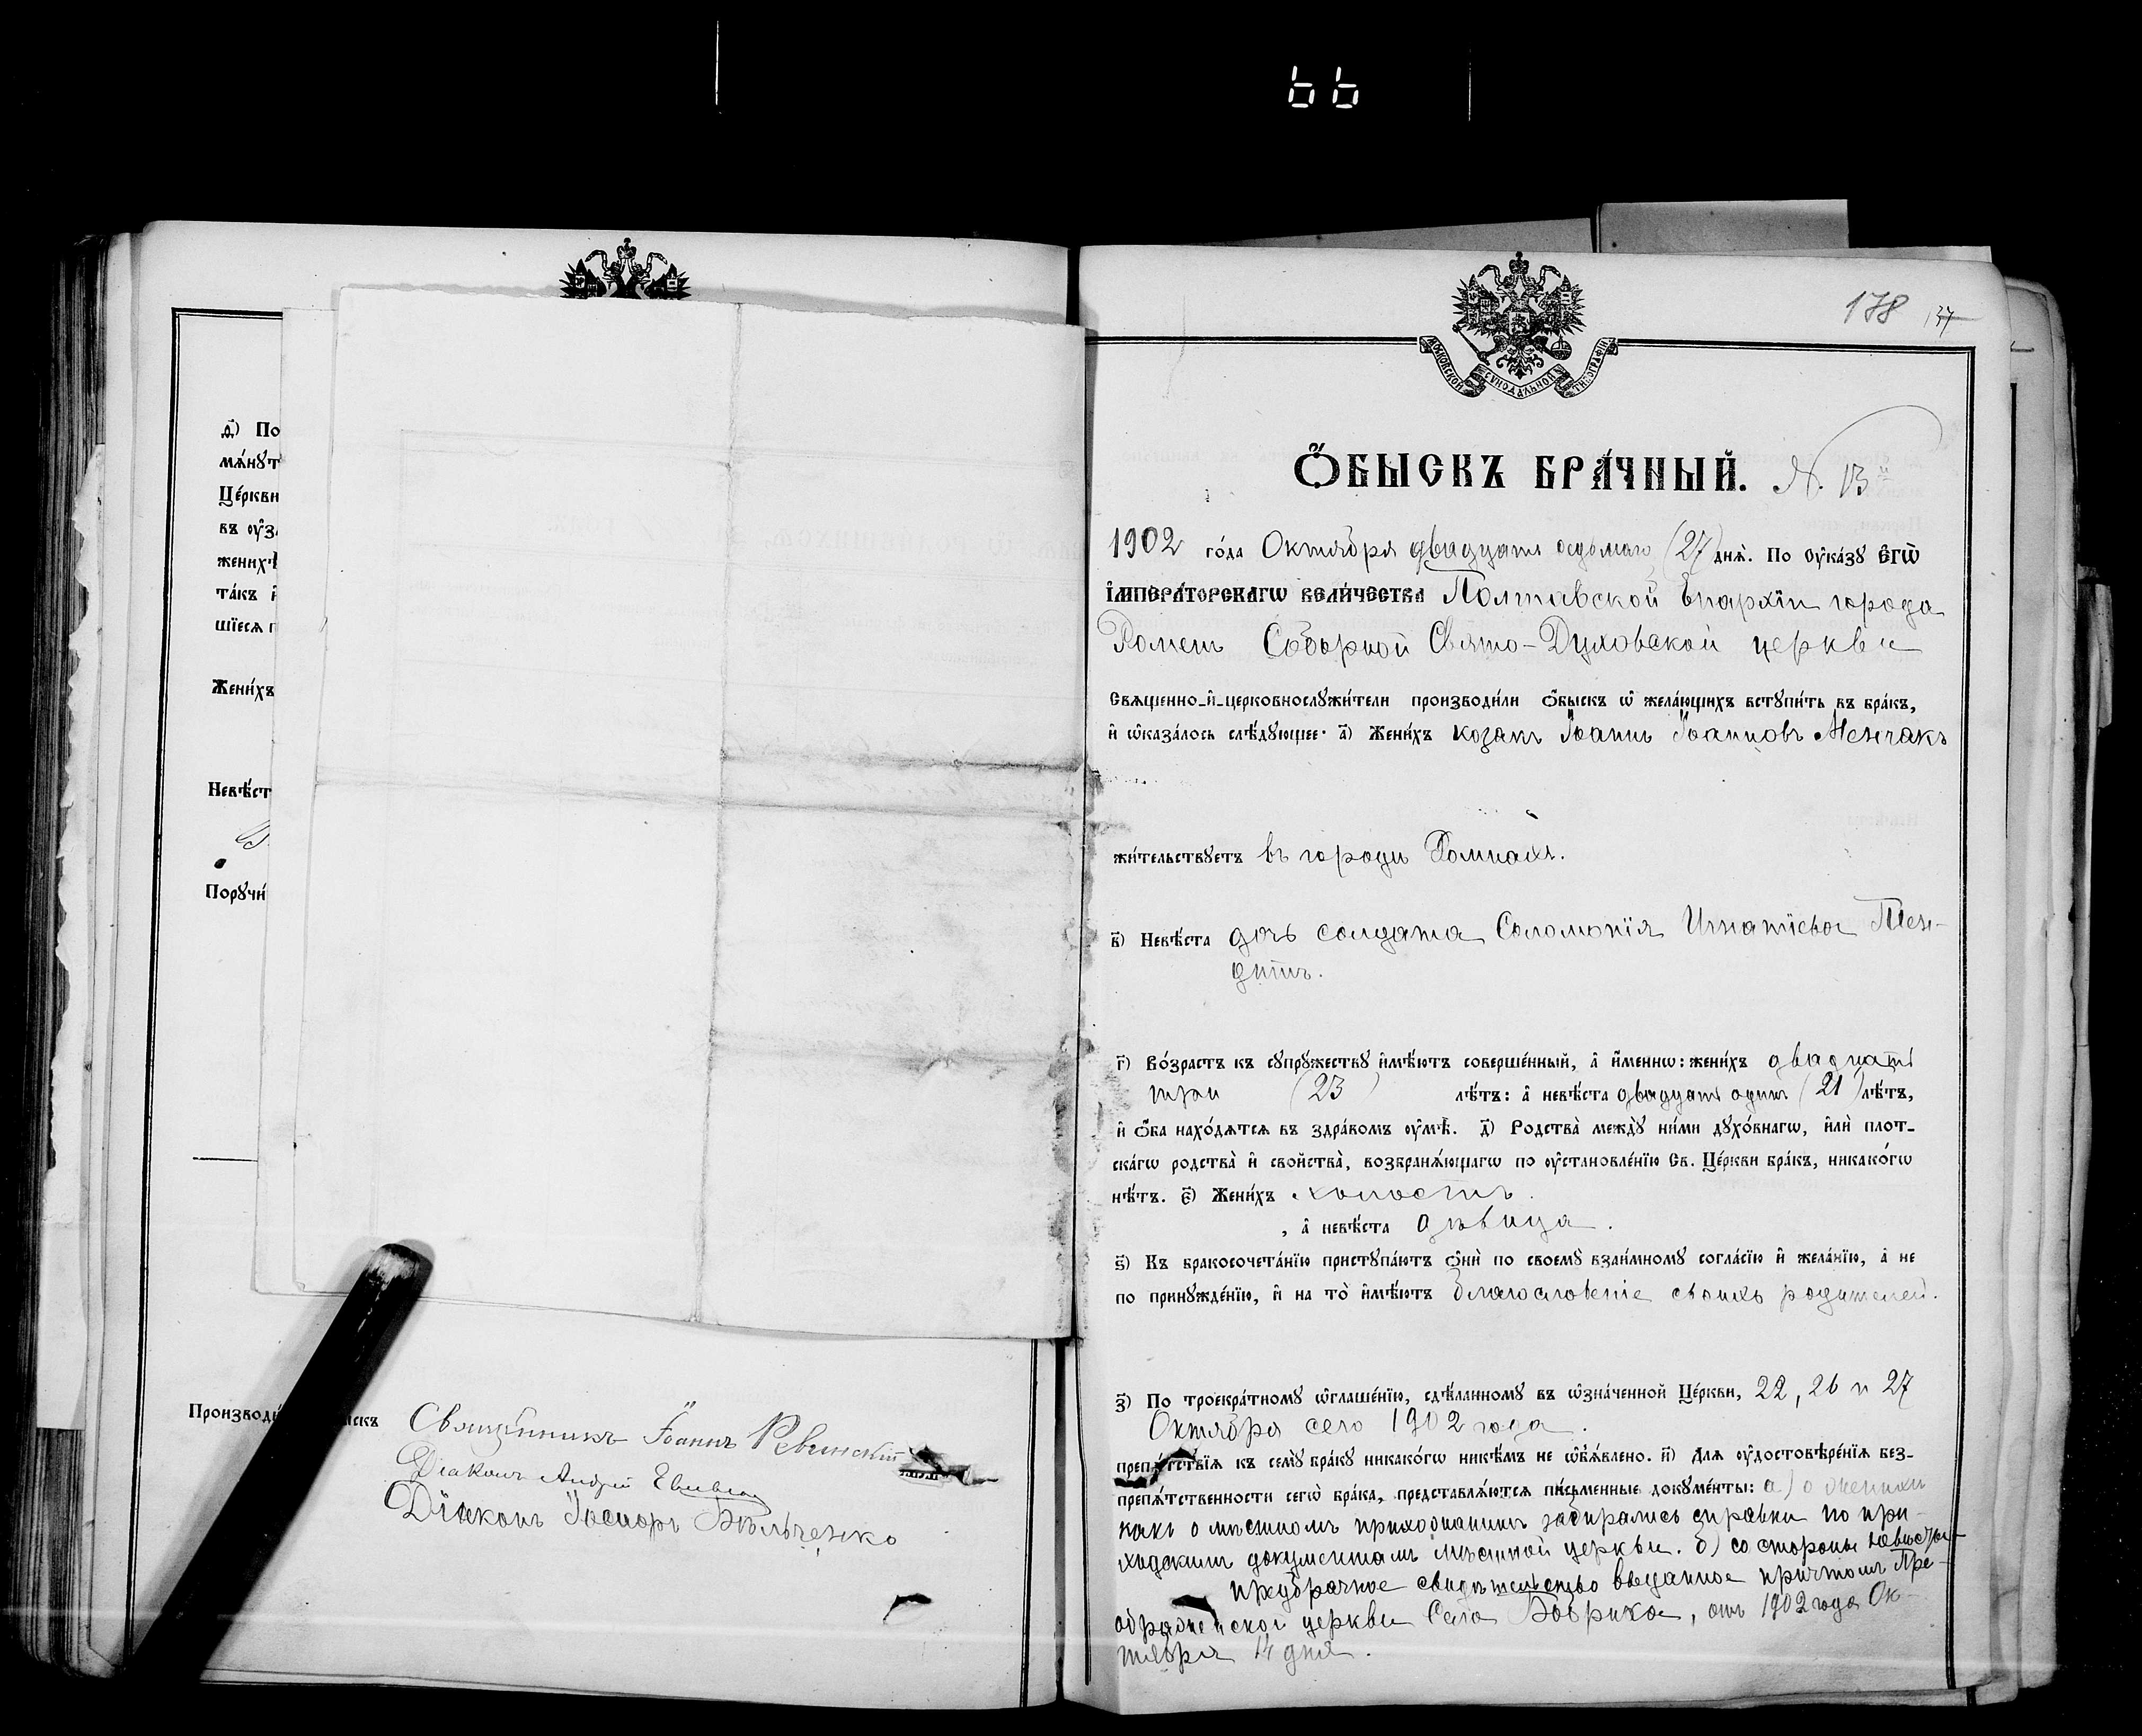 66
д҃) По
мѧ́нꙋт
Це́ркви
въ оу҆з
женихѣ
та́къ и҆
шїесѧ п
Жени́хъ
Невѣ́ст
Порꙋчи́
Производи́ ыскъ Священникъ Іоаннъ Ревинскій
Діаконъ Андрей
Діаконъ
178 137
МОСКОВСКОЙ СѴНОДАЛЬНОЙ ТИПОГРАФІИ
Ѻ҆БЫСКЪ БРА́ЧНЫЙ. № 13й
1902 го́да Октября двадцать седьмаго (27) днѧ̀. По оу҆ка́зꙋ Є҆ГѠ̀
І҆МПЕРА́ТОРСКАГѠ ВЕЛИ́ЧЕСТВА Полтавской Епархіи города
Роменъ Соборной Свято-Духовской церкви
Свѧщенно-и҆-церковнослꙋжи́тели производи́ли ѻ҆́быскъ ѡ҆ жела́ющихъ вступи́ть въ бра́къ,
и҆ ѡ҆каза́лось слѣ́дꙋющее· а҃) Жени́хъ козакъ Іоаннъ Іоанновъ Менчакъ
жи́тельствꙋетъ въ городѣ Ромнахъ.
в҃) Невѣ́ста дочь солдата Соломонія Игнатіева
г҃) Во́зрастъ къ сꙋпрꙋ́жествꙋ и҆мѣ́ютъ соверше́нный, а҆ и҆́меннѡ: жени́хъ двадцать
три (23) лѣ́тъ: а҆ невѣ́ста двадцать одинъ (21) лѣ́тъ,
и҆ ѻ҆́ба нахо́дѧтсѧ въ здра́вомъ оу҆мѣ̀. д҃) Родства̀ междꙋ̀ ни́ми дꙋхо́внагѡ, и҆лѝ плот-
ска́гѡ родства̀ и҆ свойства̀, возбранѧ́ющагѡ по оу҆становле́нїю Св. Це́ркви бра́къ, никако́гѡ
нѣ́тъ. є҃) Жени́хъ холостъ.
, а҆ невѣ́ста дѣвица.
ѕ҃) Къ бракосочета́нїю приступа́ютъ ѻ҆нѝ по своемꙋ̀ взаи́мномꙋ согла́сїю и҆ жела́нїю, а҆ не
по принꙋжде́нїю, и҆ на то̀ и҆мѣ́ютъ благословеніе своихъ родителей.
з҃) По троекра́тномꙋ ѡ҆глаше́нїю, сдѣ́ланномꙋ въ ѡ҆зна́ченной Це́ркви, 22, 26 и 27
Октября сего 1902 года.
препѧ́тствїѧ къ семꙋ̀ бра́кꙋ никако́гѡ никѣ́мъ не ѡ҆б̾ѧ́влено. и҃) Длѧ оу҆достовѣре́нїѧ без-
препѧ́тственности сегѡ̀ бра́ка, представлѧ́ютсѧ пи́сьменные докꙋме́нты: а) о женихѣ
какъ о мѣстномъ прихожанинѣ забирались справки по при-
ходскимъ документамъ мѣстной церкви. б) со стороны невѣсты
предбрачное свидѣтельство выданное причтомъ Пре-
ображенской церкви Села Бобрика, отъ 1902 года Ок-
тября 14 дня.